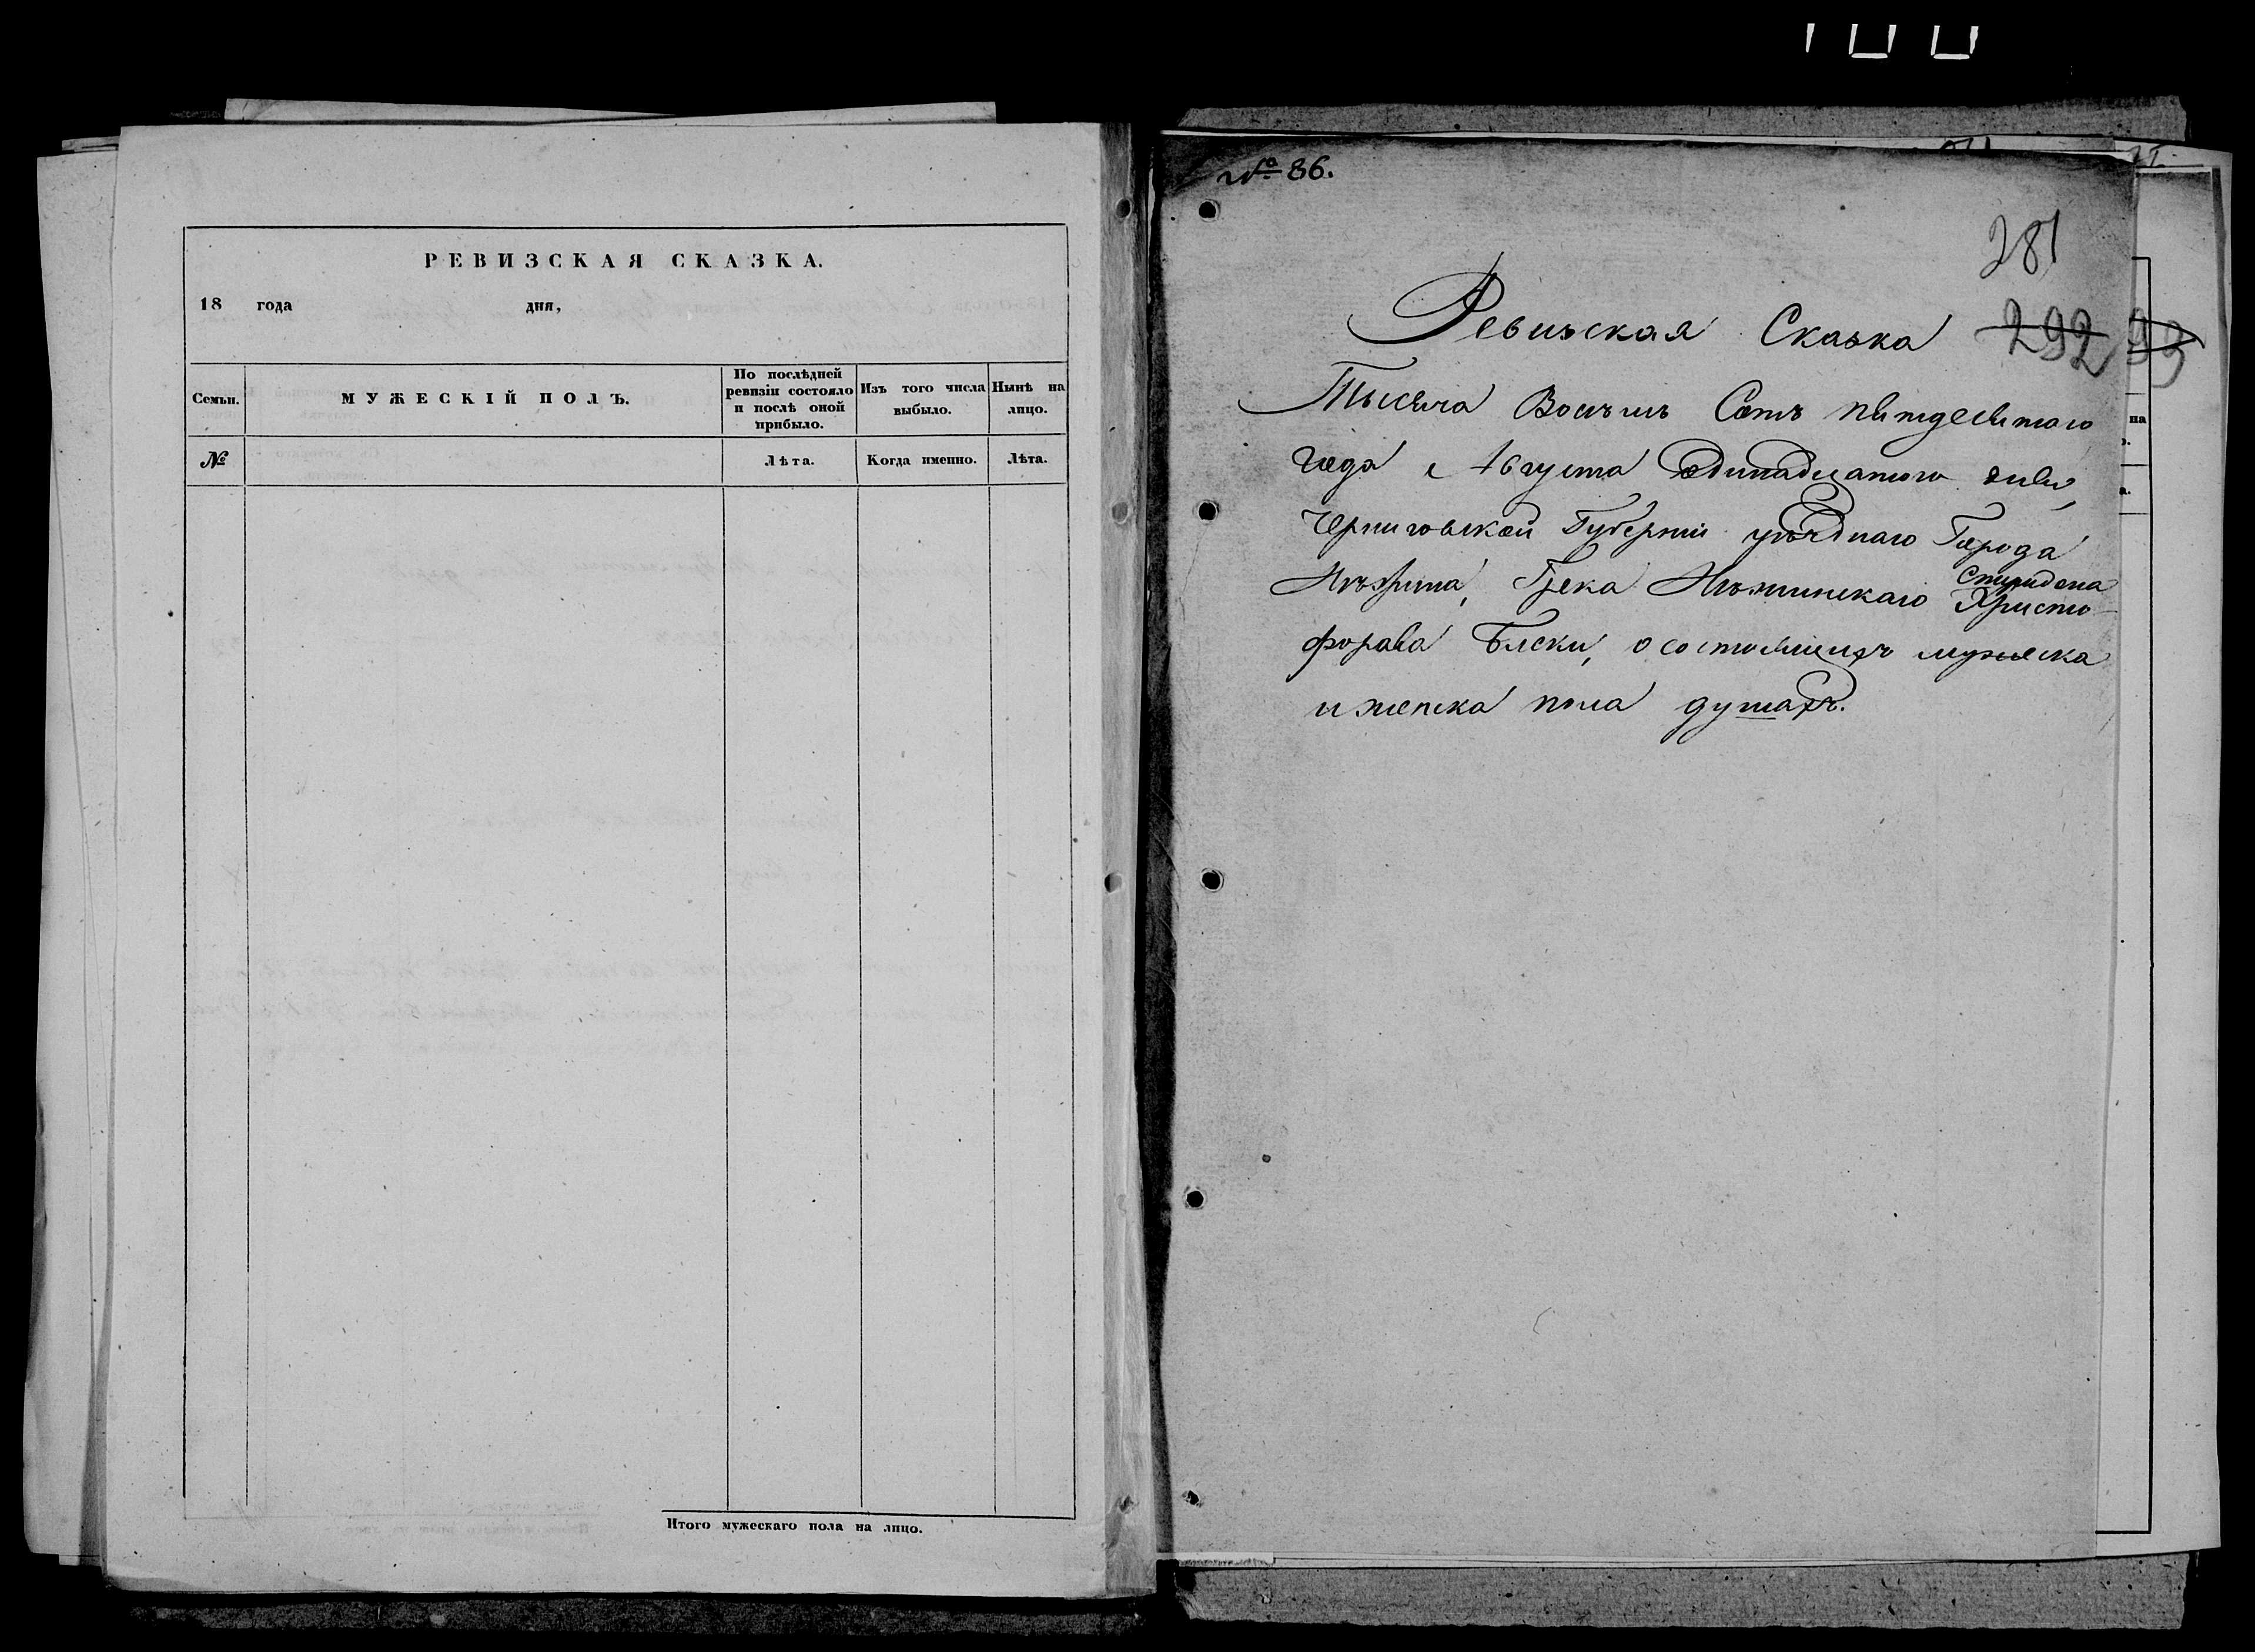 РЕВИЗСКАЯ СКАЗКА.
18 года дня,
Семьи.
МУЖЕСКІЙ ПОЛЪ.
По послѣдней
ревизіи состояло
и послѣ оной
прибыло.
Изъ того числа
выбыло.
Нынѣ на
лицо.
№
Лѣта.
Когда именно.
Лѣта.
Итого мужескаго пола на лицо.
№ 86.
281
Ревизская Сказка 292
93
Тысяча Восемь Сотъ пятдесятого
года Августа Одинадцатого дня,
Черниговской Губерніи уѣзднаго Города
Нѣжина, Грека Нѣжинскаго Спиридона Христо-
форова о состоящихъ мужеска
и женска пола душахъ.
на